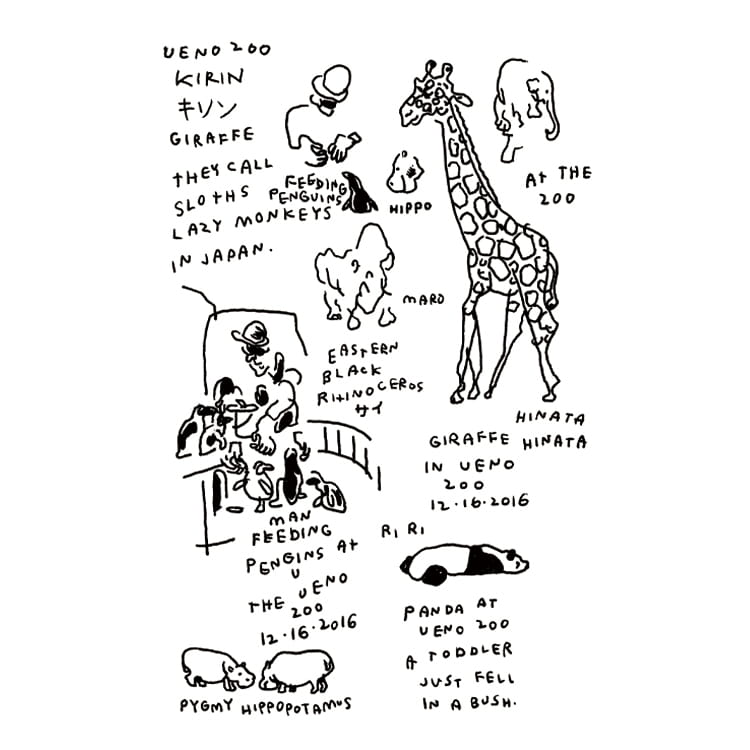 UENO ZOO
KIRIN
キリン
GIRAFFE
THEY CALL
SLOTHS
LAZY MONKEYS
IN JAPAN.
FEEDING
PENGUINS
HIPPO
AT THE
ZOO
MARO
EASTERN
BLACK
RHINOCEROS
サイ
HINATA
GIRAFFE HINATA
IN UENO
ZOO
12.16.2016
MAN
FEEDING
PENGINS AT
U
THE UENO
ZOO
12.16.2016
RI RI
PANDA AT
UENO ZOO
A TODDLER
JUST FELL
IN A BUSH.
PYGMY HIPPOPOTAMUS